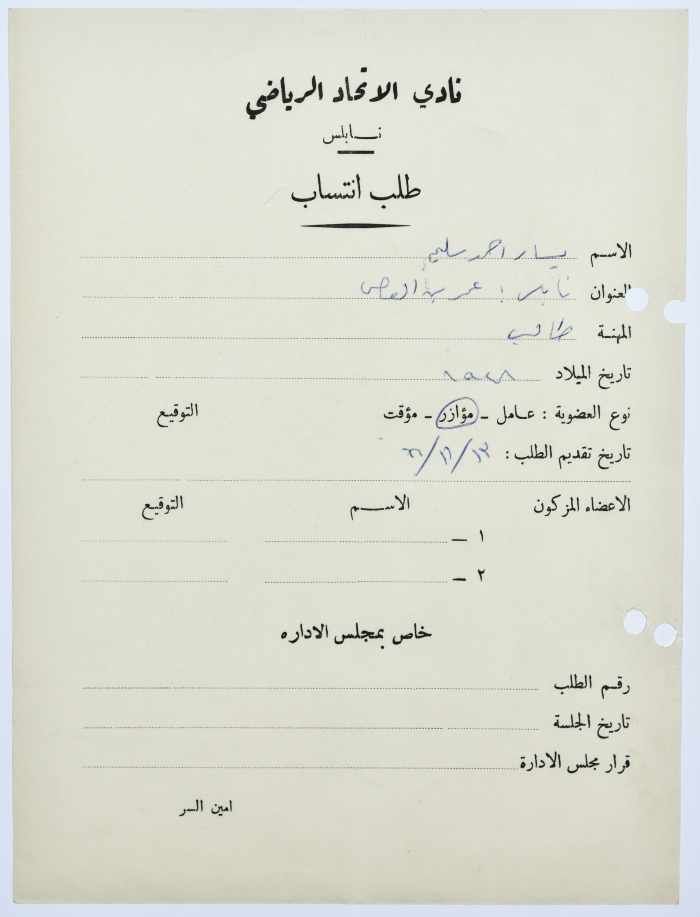 نادي الاتحاد الرياضي
نابلس
طلب انتساب
الاسم يسار احمد سليم
العنوان نابلس : عمر بن العاص
المهنة طالب
تاريخ الميلاد
نوع العضوية : عامل ـ مؤازر ـ مؤقت التوقيع
تاريخ تقديم الطلب :
الاعضاء المزكون الاسم التوقيع
١ ـ
٢ ـ
خاص بمجلس الاداره
رقم الطلب
تاريخ الجلسة
قرار مجلس الادارة
امين السر